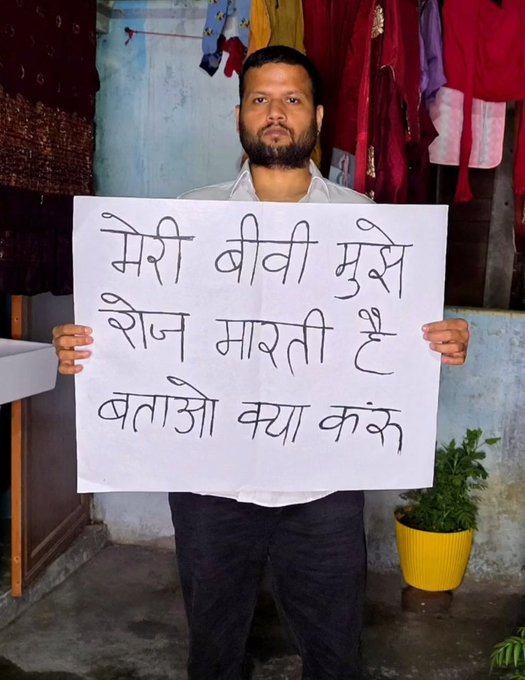 मेरी बीवी मुझे
रोज मारती है
बताओ क्या करू